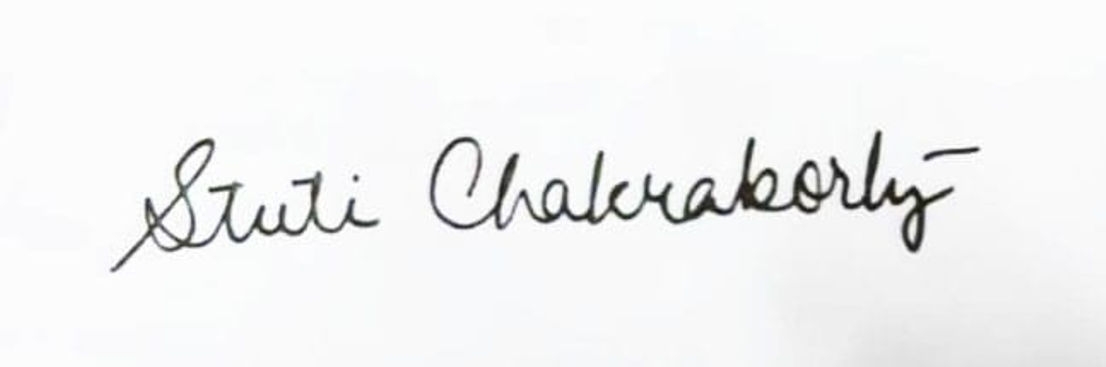 Stuti Chakraborty